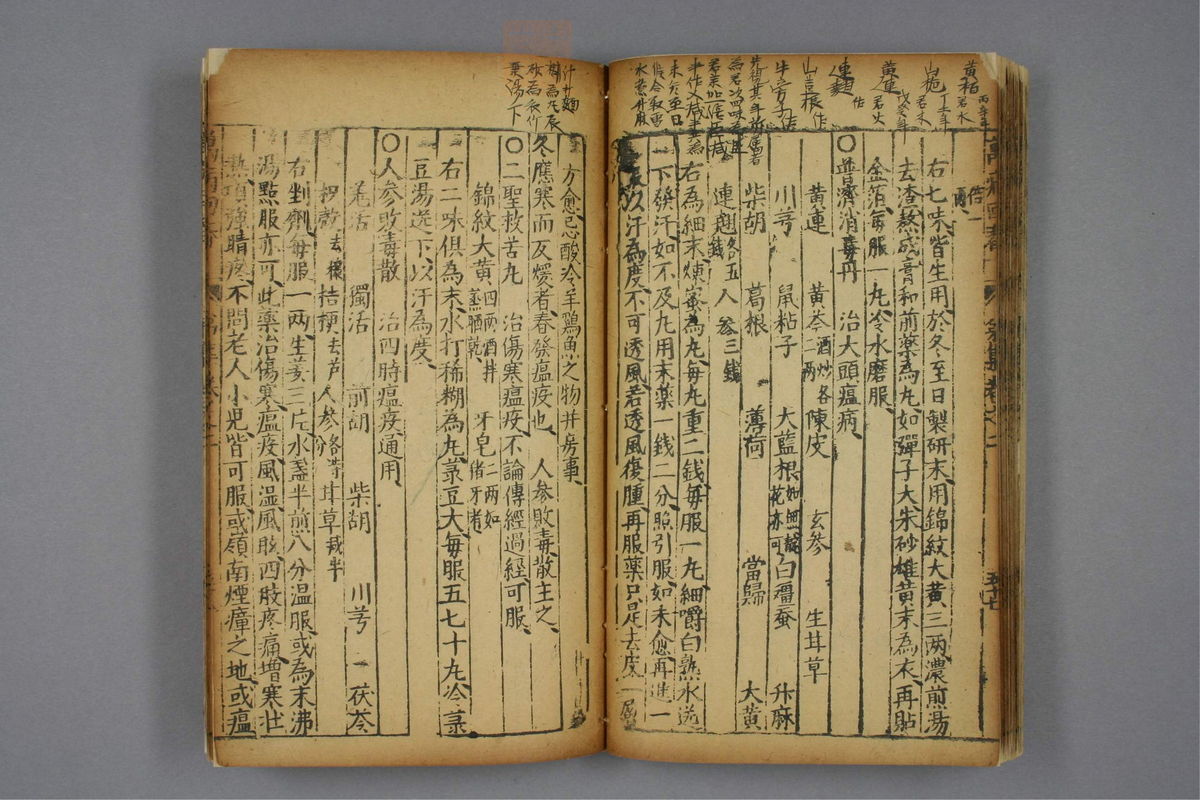 黃栢 君水 丙辛年
山梔 君木 丁壬年
黃連 君火 戊癸年
右七味皆生用於冬至日製研末用錦紋大黃三兩濃煎湯
去渣熬成膏和前藥為丸如彈子大朱砂雄黃末為衣再貼
金箔每服一丸冷水磨服
○普濟消毒丹 治大頭瘟病
黃連 黃芩 二兩 酒炒各 陳皮 玄參 生甘草
川芎 鼠粘子 大藍根 如無靛花亦可 白殭蚕 升麻
柴胡 葛根 薄荷 當歸 大黃
連翹 各五錢 人參 三錢
右為細末煉蜜為丸每丸重二錢每服一丸細嚼白熟水送
下發汗如不及丸用末藥一錢二分照引服如未愈再進一
服以汗為度不可透風若透風復腫再服藥只是去皮一層
方愈忌酸冷羊鷄魚之物并房事
冬應寒而反煖者春發瘟疫也 人參敗毒散主之
○二聖救苦丸 治傷寒瘟疫不論傳經過經可服
錦紋大黃 四兩酒拌蒸晒乾 牙皂 二兩如猪牙者
右二味俱為末水打稀糊為丸菉豆大每服五七十丸冷菉
豆湯送下以汗為度
○人參敗毒散 治四時瘟疫通用
羌活 獨活 前胡 柴胡 川芎 茯苓
枳殼 去穰 桔梗 去芦 人參 各等分 甘草 減半
右剉劑每服一兩生姜三片水盞半煎八分溫服或為末沸
湯點服亦可此藥治傷寒瘟疫風溫風眩四肢疼痛增寒壯
熱項強睛疼不問老人小兒皆可服或嶺南煙瘴之地或瘟